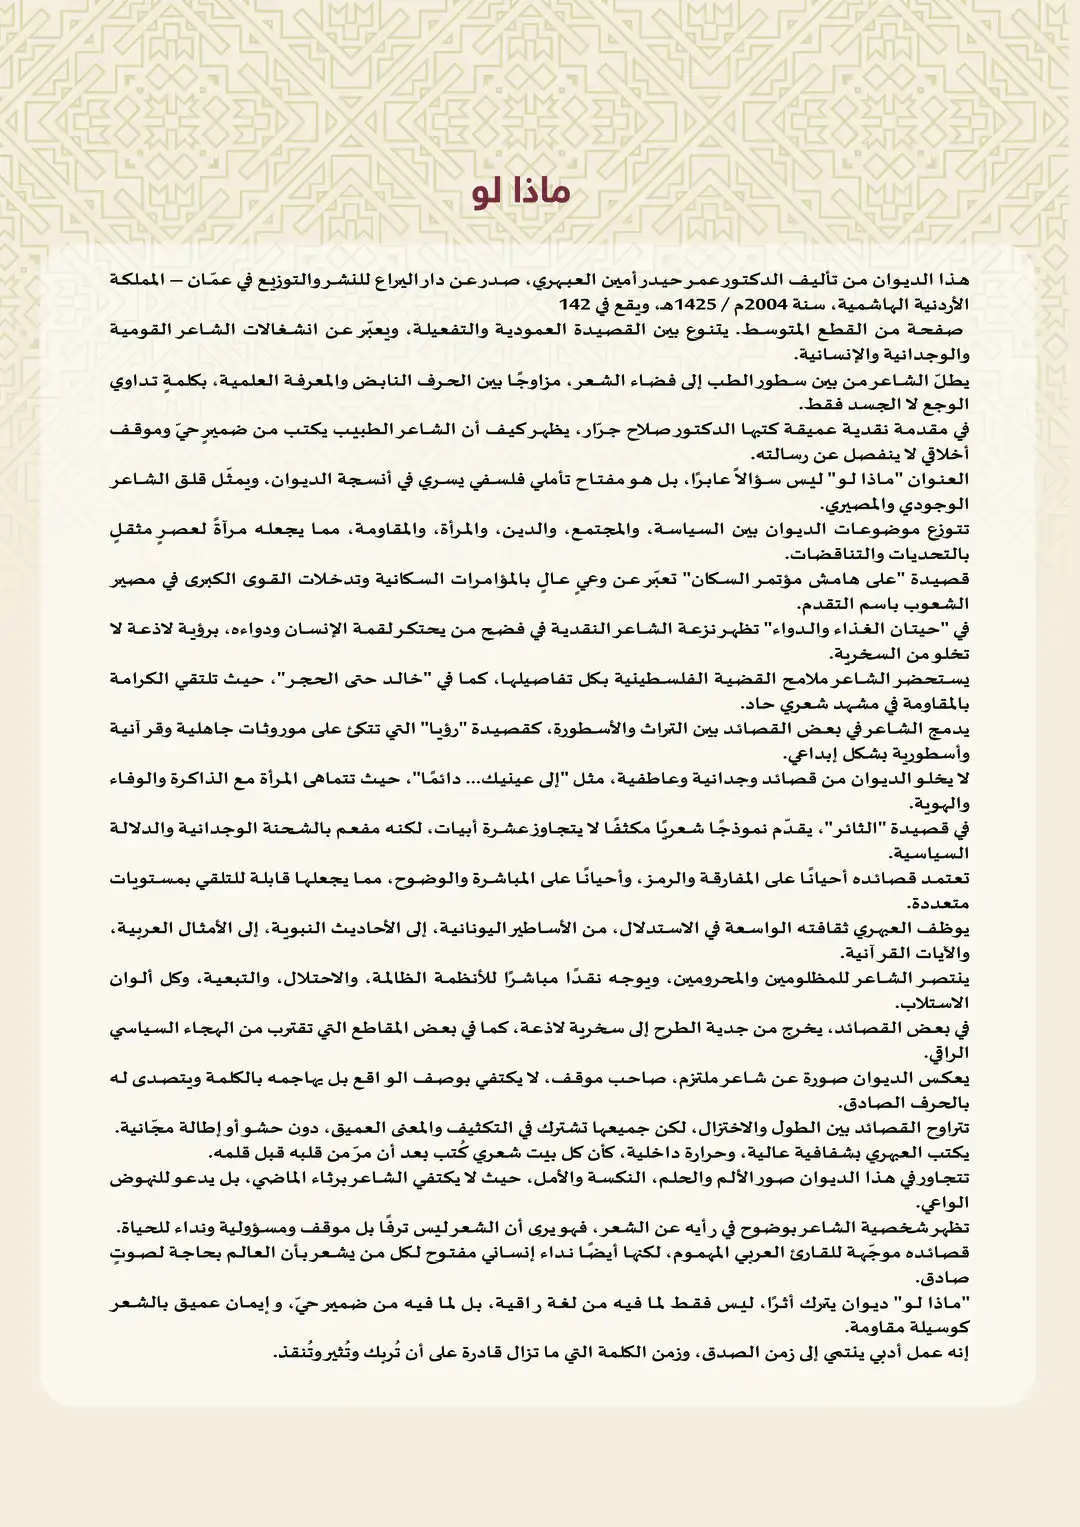 ماذا لو
هذا الديوان من تأليف الدكتور عمر حيدر أمين العبهري، صدر عن دار اليراع للنشر والتوزيع في عمّان – المملكة
الأردنية الهاشمية، سنة 2004م / 1425هـ، ويقع في 142
صفحة من القطع المتوسط. يتنوع بين القصيدة العمودية والتفعيلة، ويعبّر عن انشغالات الشاعر القومية
والوجدانية والإنسانية.
يطلّ الشاعر من بين سطور الطب إلى فضاء الشعر، مزاوجًا بين الحرف النابض والمعرفة العلمية، بكلمةٍ تداوي
الوجع لا الجسد فقط.
في مقدمة نقدية عميقة كتبها الدكتور صلاح جرّار، يظهر كيف أن الشاعر الطبيب يكتب من ضميرٍ حيّ وموقف
أخلاقي لا ينفصل عن رسالته.
العنوان "ماذا لو" ليس سؤالاً عابرًا، بل هو مفتاح تأملي فلسفي يسري في أنسجة الديوان، ويمثّل قلق الشاعر
الوجودي والمصيري.
تتوزع موضوعات الديوان بين السياسة، والمجتمع، والدين، والمرأة، والمقاومة، مما يجعله مرآةً لعصرٍ مثقلٍ
بالتحديات والتناقضات.
قصيدة "على هامش مؤتمر السكان" تعبّر عن وعيٍ عالٍ بالمؤامرات السكانية وتدخلات القوى الكبرى في مصير
الشعوب باسم التقدم.
في "حيتان الغذاء والدواء" تظهر نزعة الشاعر النقدية في فضح من يحتكر لقمة الإنسان ودواءه، برؤية لاذعة لا
تخلو من السخرية.
يستحضر الشاعر ملامح القضية الفلسطينية بكل تفاصيلها، كما في "خالد حتى الحجر"، حيث تلتقي الكرامة
بالمقاومة في مشهد شعري حاد.
يدمج الشاعر في بعض القصائد بين التراث والأسطورة، كقصيدة "رؤيا" التي تتكئ على موروثات جاهلية وقرآنية
وأسطورية بشكل إبداعي.
لا يخلو الديوان من قصائد وجدانية وعاطفية، مثل "إلى عينيك... دائمًا"، حيث تتماهى المرأة مع الذاكرة والوفاء
والهوية.
في قصيدة "الثائر"، يقدّم نموذجًا شعريًا مكثفًا لا يتجاوز عشرة أبيات، لكنه مفعم بالشحنة الوجدانية والدلالة
السياسية.
تعتمد قصائده أحيانًا على المفارقة والرمز، وأحيانًا على المباشرة والوضوح، مما يجعلها قابلة للتلقي بمستويات
متعددة.
يوظف العبهري ثقافته الواسعة في الاستدلال، من الأساطير اليونانية، إلى الأحاديث النبوية، إلى الأمثال العربية،
والآيات القرآنية.
ينتصر الشاعر للمظلومين والمحرومين، ويوجه نقدًا مباشرًا للأنظمة الظالمة، والاحتلال، والتبعية، وكل ألوان
الاستلاب.
في بعض القصائد، يخرج من جدية الطرح إلى سخرية لاذعة، كما في بعض المقاطع التي تقترب من الهجاء السياسي
الراقي.
يعكس الديوان صورة عن شاعر ملتزم، صاحب موقف، لا يكتفي بوصف الواقع بل يهاجمه بالكلمة ويتصدى له
بالحرف الصادق.
تتراوح القصائد بين الطول والاختزال، لكن جميعها تشترك في التكثيف والمعنى العميق، دون حشو أو إطالة مجّانية.
يكتب العبهري بشفافية عالية، وحرارة داخلية، كأن كل بيت شعري كُتب بعد أن مرّ من قلبه قبل قلمه.
تتجاور في هذا الديوان صور الألم والحلم، النكسة والأمل، حيث لا يكتفي الشاعر برثاء الماضي، بل يدعو للنهوض
الواعي.
تظهر شخصية الشاعر بوضوح في رأيه عن الشعر، فهو يرى أن الشعر ليس ترفًا بل موقف ومسؤولية ونداء للحياة.
قصائده موجّهة للقارئ العربي المهموم، لكنها أيضًا نداء إنساني مفتوح لكل من يشعر بأن العالم بحاجة لصوتٍ
صادق.
"ماذا لو" ديوان يترك أثرًا، ليس فقط لما فيه من لغة راقية، بل لما فيه من ضمير حيّ، وإيمان عميق بالشعر
كوسيلة مقاومة.
إنه عمل أدبي ينتمي إلى زمن الصدق، وزمن الكلمة التي ما تزال قادرة على أن تُربك وتُثير وتُنقذ.